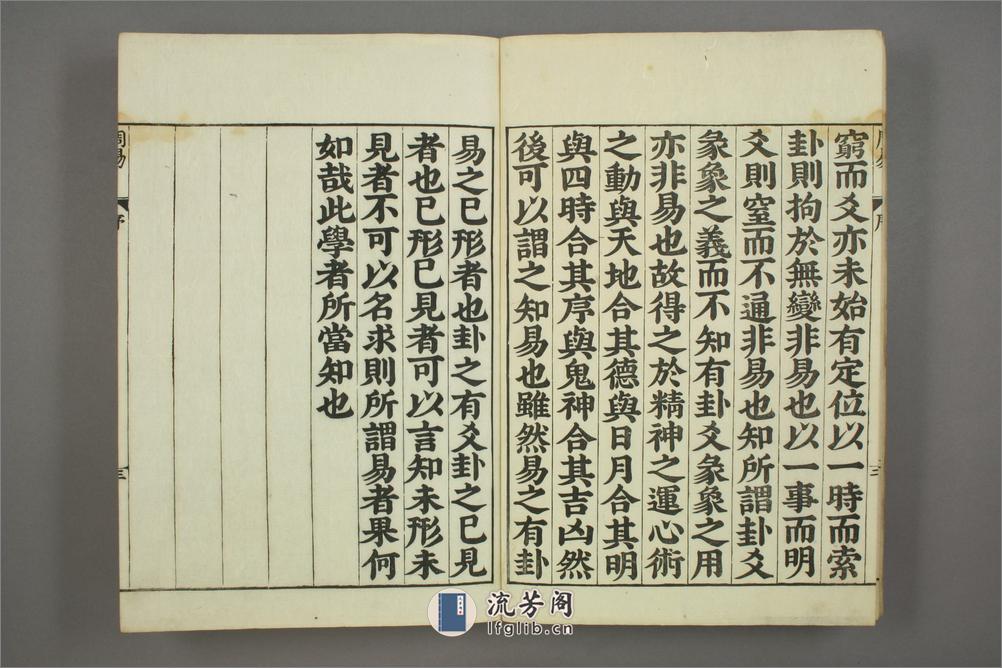 窮而爻亦未始有定位以一時而索
卦則拘於無變非易也以一事而明
爻則窒而不通非易也知所謂卦爻
彖象之義而不知有卦爻彖象之用
亦非易也故得之於精神之運心術
之動與天地合其德與日月合其明
與四時合其序與鬼神合其吉凶然
後可以謂之知易也雖然易之有卦
易之已形者也卦之有爻卦之已見
者也已形已見者可以言知未形未
見者不可以名求則所謂易者果何
如哉此學者所當知也
周易
序
三
流芳阁
lfglib.cn